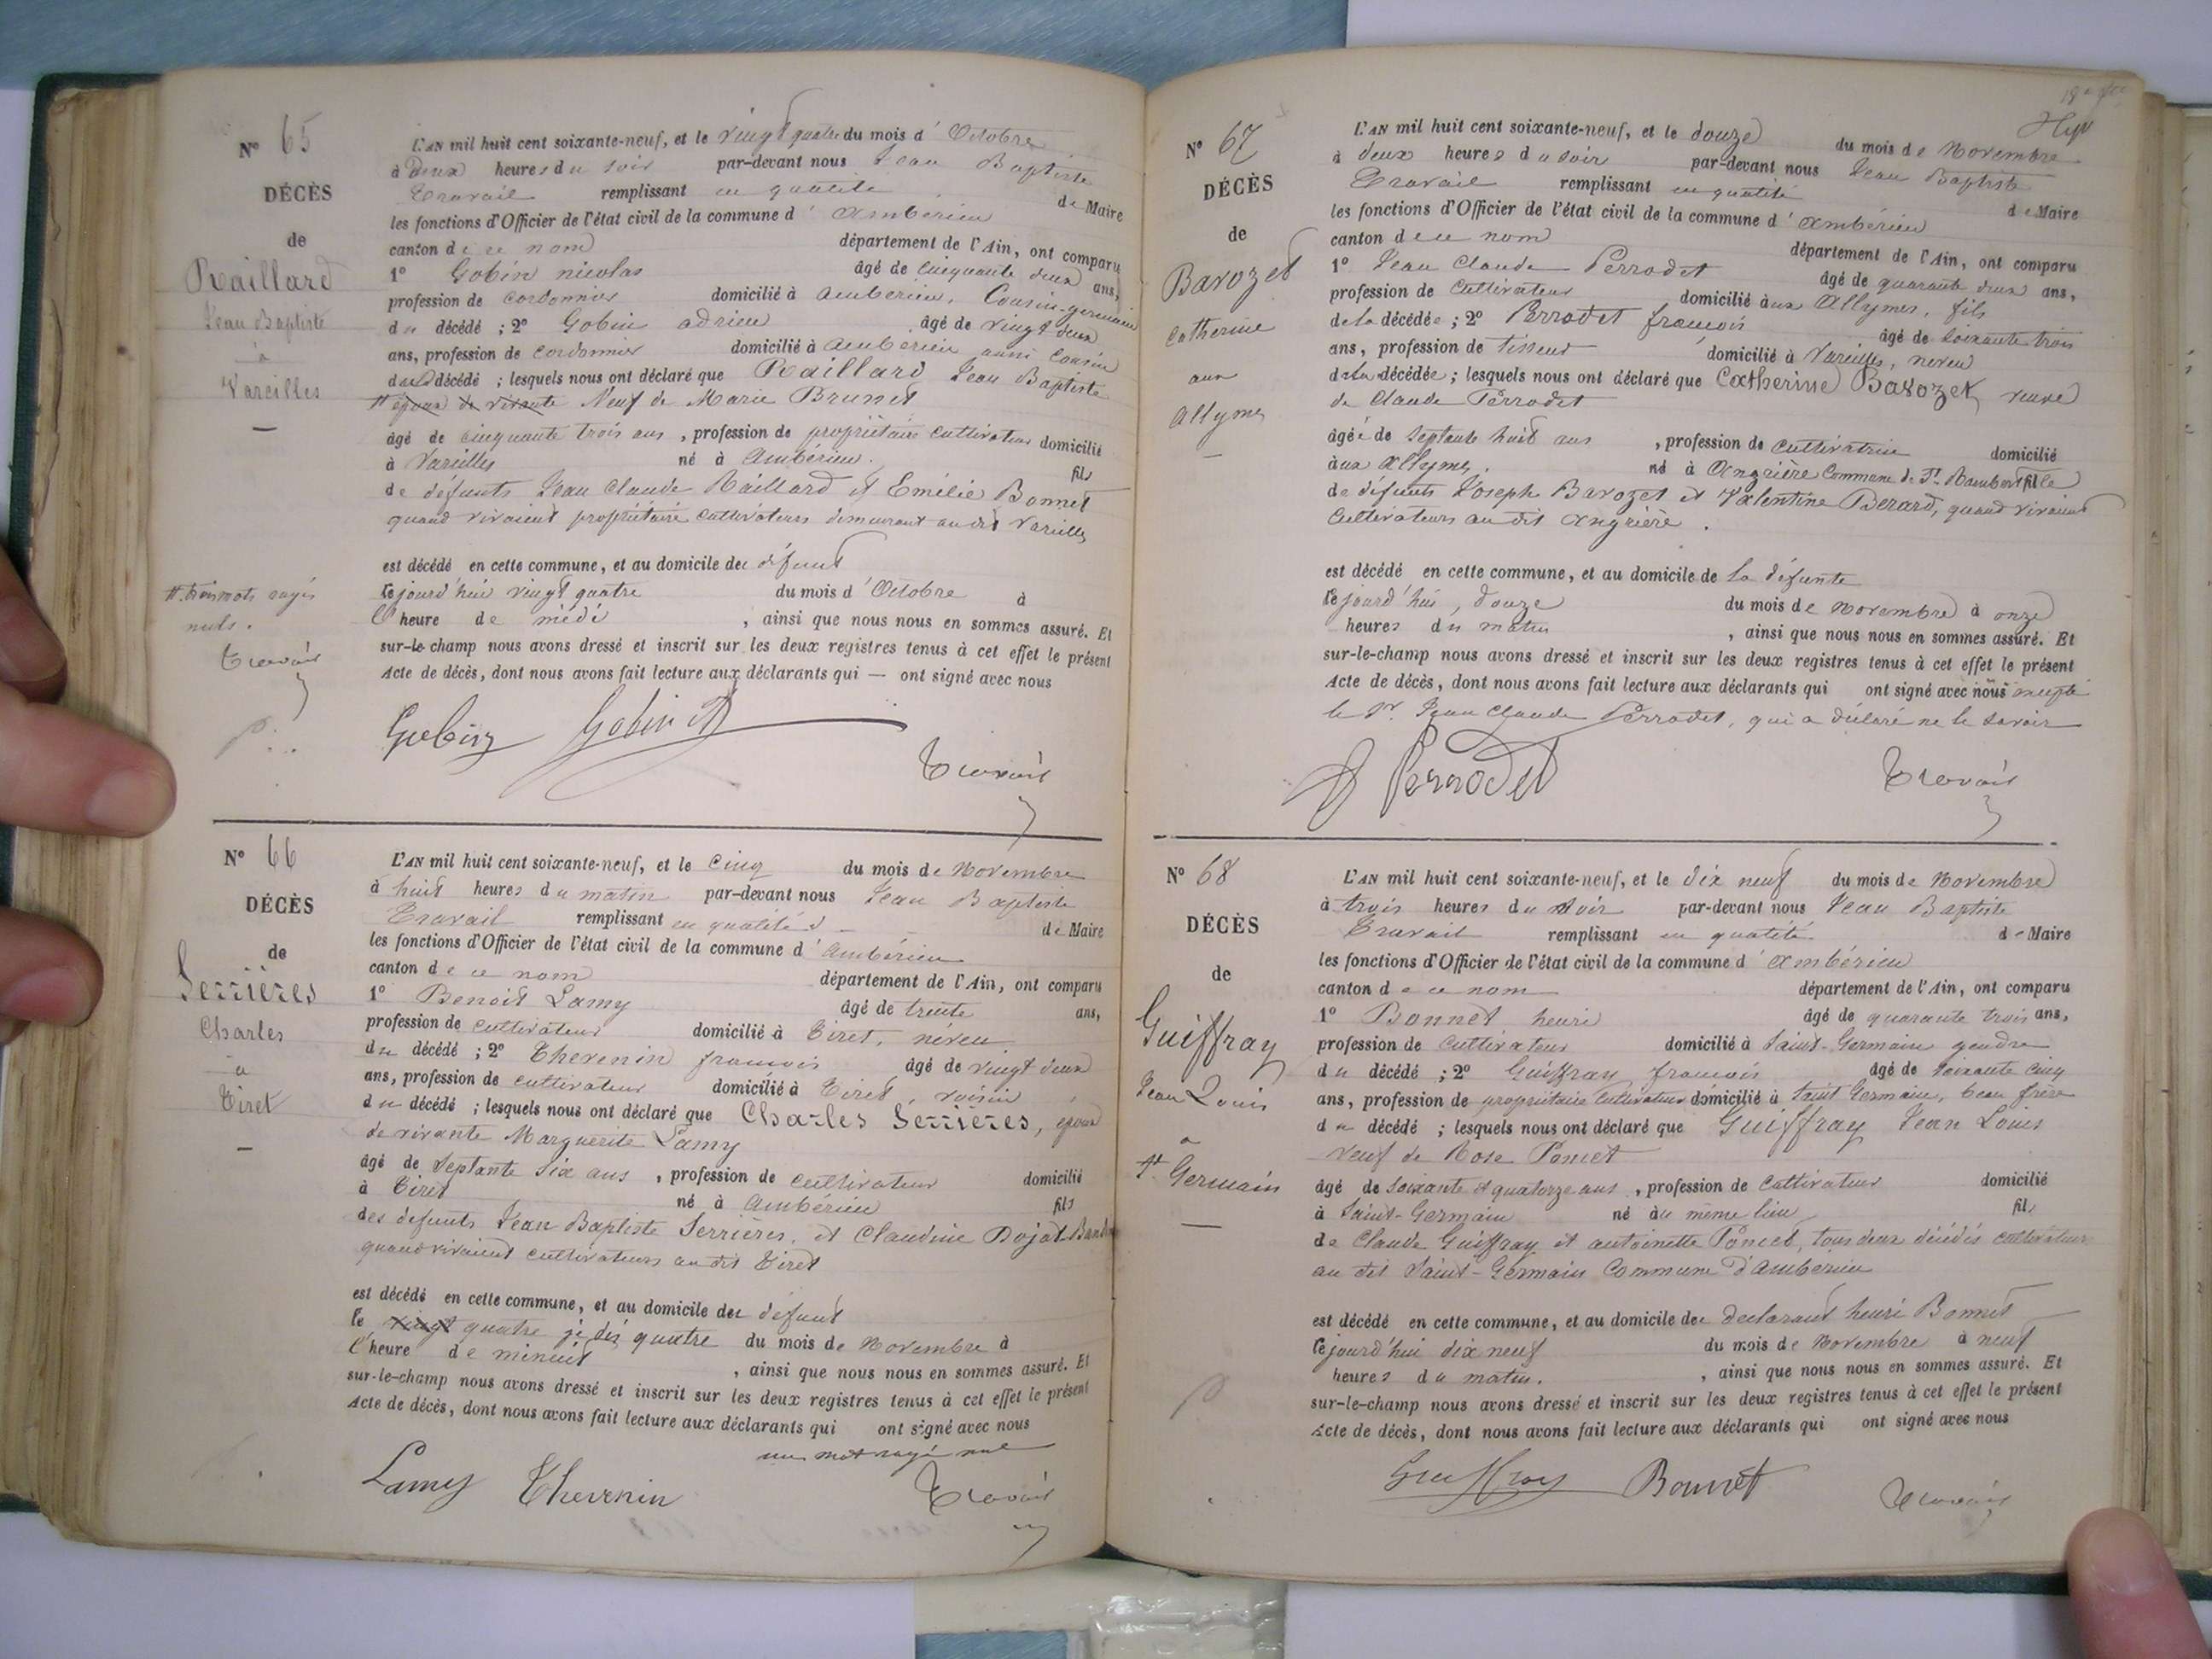 N° 65
DÉCÈS
de
Raillard
Jean Baptiste
à
Vareilles
L'AN mil huit cent soixante-neuf, et le vingt quatre du mois d'Octobre
à Deux heures du soir par-devant nous Jean Baptiste
Travail remplissant en qualité de Maire
les fonctions d'Officier de l'état civil de la commune d'ambérieu
canton de ce nom département de l'Ain, ont comparu
1° Gobin nicolas âgé de cinquante deux ans,
profession de cordonnier domicilié à ambérieu, Cousin-germain
du décédé ; 2° Gobin adrien âgé de vingt deux
ans, profession de cordonnier domicilié à ambérieu aussi Cousin
du décédé ; lesquels nous ont déclaré que Raillard Jean Baptiste
# époux de vivante Veuf de Marie Brunet
âgé de cinquante trois ans, profession de propriétaire cultivateur domicilié
à Vareilles né à Ambérieu. fils
de défunts Jean Claude Raillard et Emélie Bonnet
quand vivaient propriétaire cultivateurs demeurant au dit Vareilles
est décédé en cette commune, et au domicile du défunt
cejourd'hui vingt quatre du mois d'Octobre à
l'heure de médi, ainsi que nous nous en sommes assuré. Et
sur-le-champ nous avons dressé et inscrit sur les deux registres tenus à cet effet le présent
Acte de décès, dont nous avons fait lecture aux déclarants qui — ont signé avec nous
# trois mots rayés
nuls.
Travail
Gobin Gobin A
Travail
N° 66
DÉCÈS
de
Serrières
Charles
à
Tiret
L'AN mil huit cent soixante-neuf, et le cinq du mois de Novembre
à huit heures du matin par-devant nous Jean Baptiste
Travail remplissant en qualité de Maire
les fonctions d'Officier de l'état civil de la commune d'ambérieu
canton de ce nom département de l'Ain, ont comparu
1° Benoit Lamy âgé de trente ans,
profession de cultivateur domicilié à Tiret, néveu
du décédé ; 2° Thevenin francois âgé de vingt deux
ans, profession de cultivateur domicilié à Tiret, voisin
du décédé ; lesquels nous ont déclaré que Charles Serrières, époux
de vivante Marguerite Lamy
âgé de septante six ans, profession de cultivateur domicilié
à Tiret né à Ambérieu fils
des défunts Jean Baptiste Serrières, et Claudine Dojat
quand vivaient cultivateurs au dit Tiret
est décédé en cette commune, et au domicile du défunt
le vingt quatre quatre du mois de Novembre à
l'heure de minuit, ainsi que nous nous en sommes assuré. Et
sur-le-champ nous avons dressé et inscrit sur les deux registres tenus à cet effet le présent
Acte de décès, dont nous avons fait lecture aux déclarants qui ont signé avec nous
un mot rayé nul
Lamy Thevenin Travail
N° 67
DÉCÈS
de
Bavozet
Catherine
aux
Allymes
L'AN mil huit cent soixante-neuf, et le douze du mois de Novembre
à deux heures du soir par-devant nous Jean Baptiste
Travail remplissant en qualité de Maire
les fonctions d'Officier de l'état civil de la commune d'ambérieu
canton de ce nom département de l'Ain, ont comparu
1° Jean Claude Perrodet âgé de quarante deux ans,
profession de cultivateur domicilié aux Allymes, fils
de la décédée ; 2° Perrodet françois âgé de soixante trois
ans, profession de tisseur domicilié à Vareilles, neveu
de la décédée ; lesquels nous ont déclaré que Catherine Bavozet veuve
de Claude Perrodet
âgée de septante huit ans, profession de cultivatrice domicilié
aux Allymes. né à Angrière Commune de St. Rambert fille
de défunts Joseph Bavozet et Valentine Berard, quand vivaient
cultivateurs au dit Angrière.
est décédé en cette commune, et au domicile de la défunte
cejourd'hui, douze du mois de Novembre à onze
heures du matin, ainsi que nous nous en sommes assuré. Et
sur-le-champ nous avons dressé et inscrit sur les deux registres tenus à cet effet le présent
Acte de décès, dont nous avons fait lecture aux déclarants qui ont signé avec nous excepté
le Sr. Jean Claude Perrodet, qui a déclaré ne le savoir
Perrodet Travail
N° 68
DÉCÈS
de
Guiffray
Jean Louis
à
St. Germain
L'AN mil huit cent soixante-neuf, et le dix neuf du mois de Novembre
à trois heures du soir par-devant nous Jean Baptiste
Travail remplissant en qualité de Maire
les fonctions d'Officier de l'état civil de la commune d'ambérieu
canton de ce nom département de l'Ain, ont comparu
1° Bonnet henri âgé de quarante trois ans,
profession de cultivateur domicilié à Saint-Germain gendre
du décédé ; 2° Guiffray francois âgé de soixante cinq
ans, profession de propriétaire cultivateur domicilié à Saint Germain, beau frère
du décédé ; lesquels nous ont déclaré que Guiffray Jean Louis
veuf de Rose Poncet
âgé de soixante et quatorze ans, profession de cultivateur domicilié
à Saint-Germain né au même lieu fils
de Claude Guiffray et antoinette Poncet, tous deux décédés cultivateurs
au dit Saint-Germain Commune d'ambérieu
est décédé en cette commune, et au domicile du declarant henri Bonnet
cejourd'hui dix neuf du mois de Novembre à neuf
heures du matin, ainsi que nous nous en sommes assuré. Et
sur-le-champ nous avons dressé et inscrit sur les deux registres tenus à cet effet le présent
Acte de décès, dont nous avons fait lecture aux déclarants qui ont signé avec nous
Guiffray Bonnet Travail